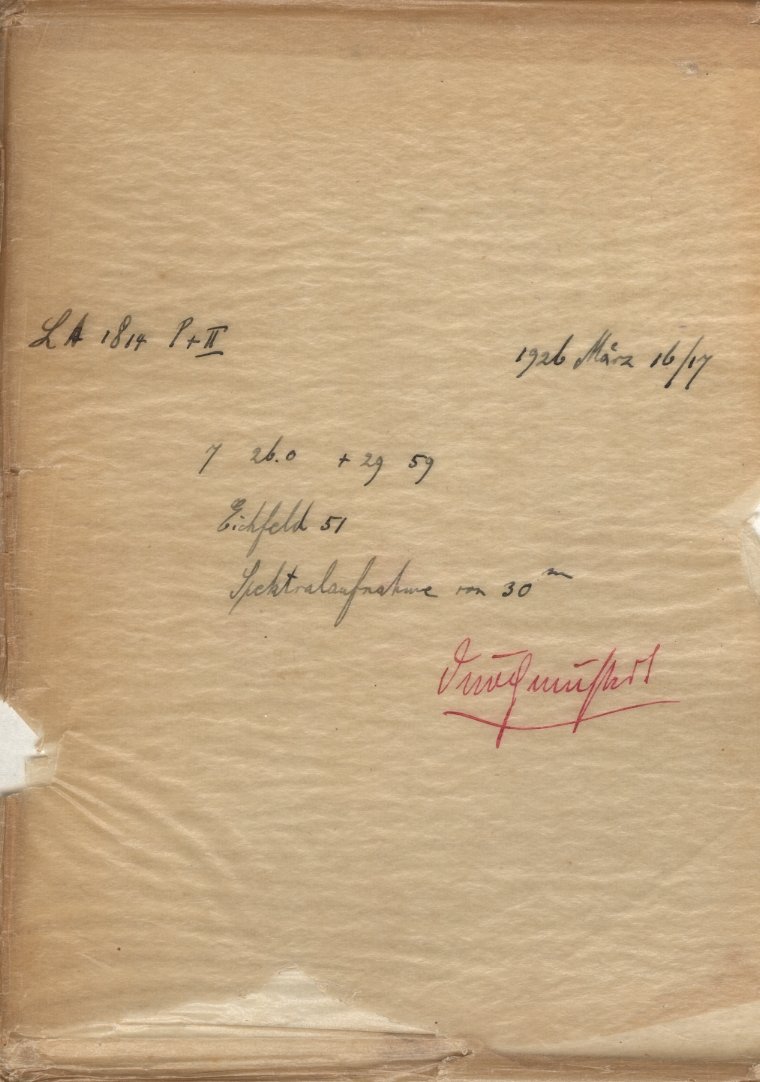 LA 1814 P+II
1926 März 16/17
7 26.0 +29 59
Eichfeld 51
Spektralaufnahme von 30ᵐ
Durchmustert